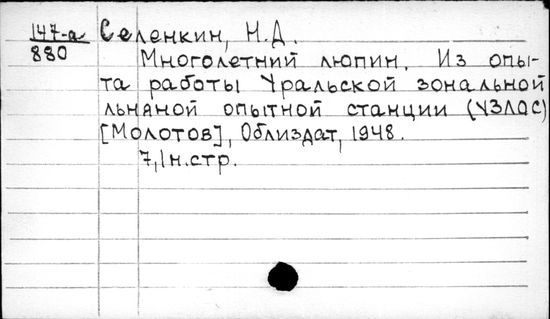 147-а Селенкин, Н.Д.
880
Многолетний люпин. Из опы-
та работы Уральской зональной
льняной опытной станции (УЗЛОС)
[Молотов], Облиздат, 1948.
7,1н.стр.